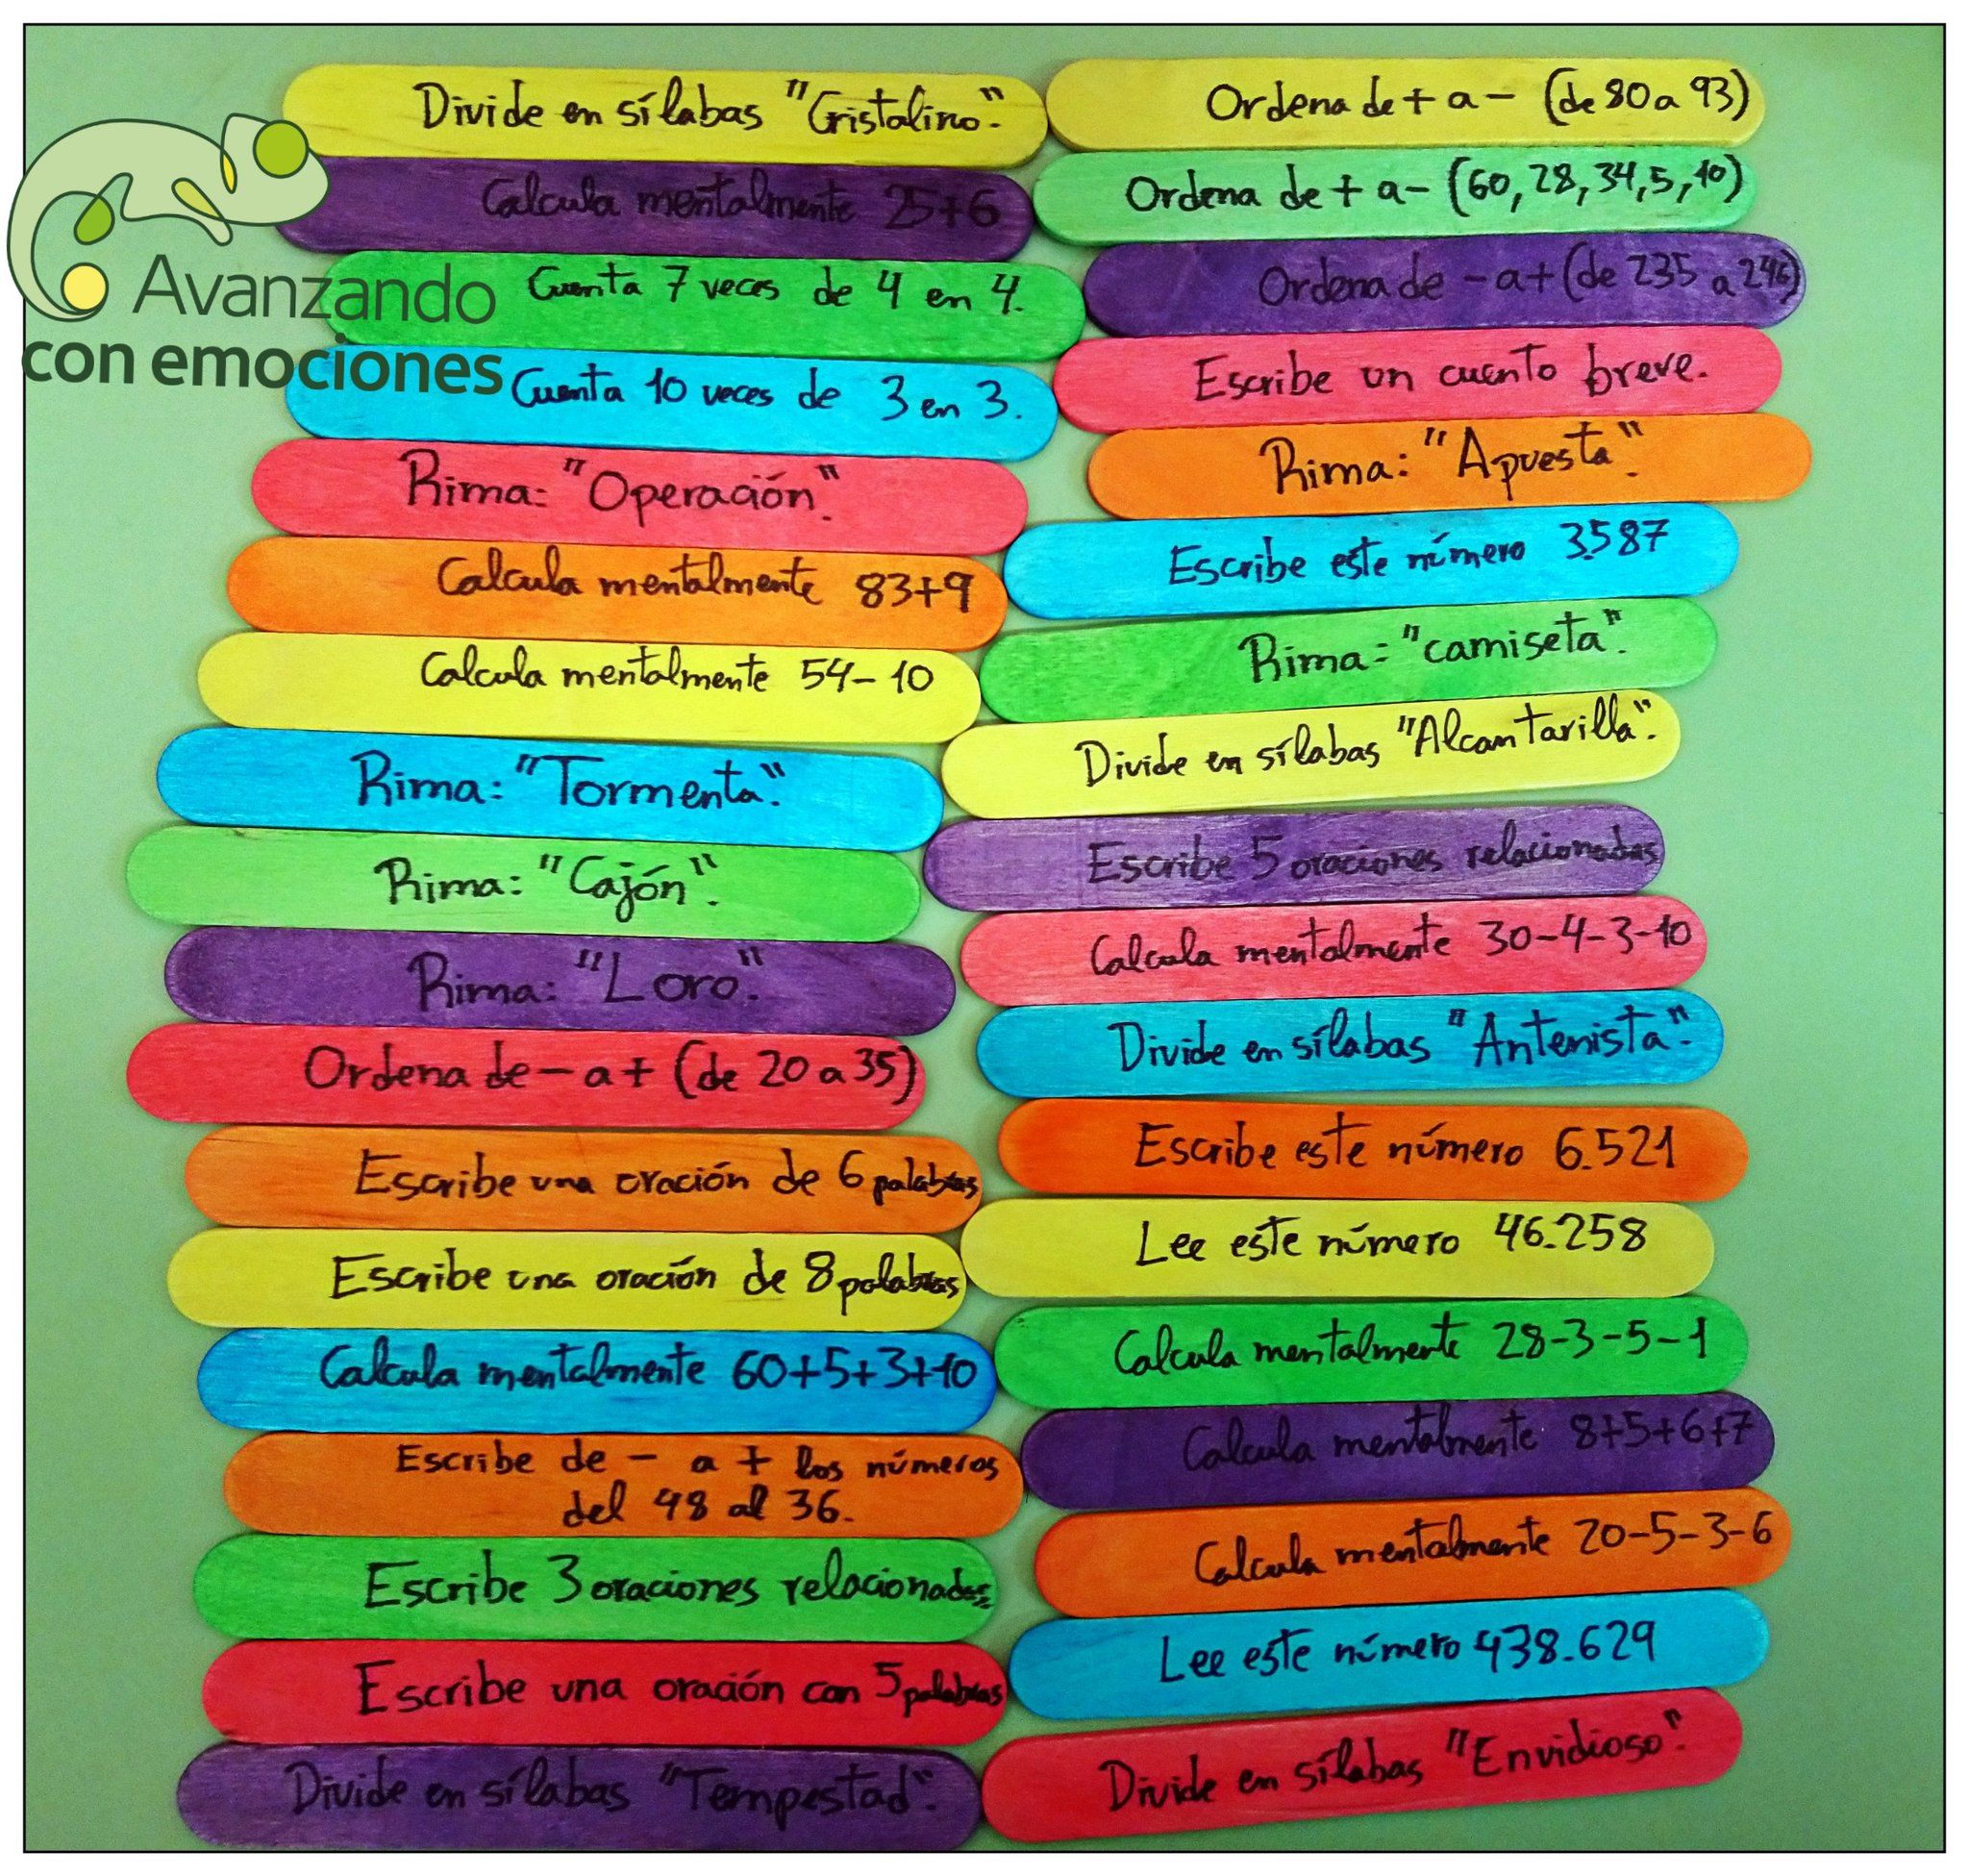 Avanzando
con emociones
Divide en sílabas "Cristalino".
Calcula mentalmente 25+6
Cuenta 7 veces de 4 en 4.
Cuenta 10 veces de 3 en 3.
Rima: "Operación".
Calcula mentalmente 83+9
Calcula mentalmente 54-10
Rima: "Tormenta".
Rima: "Cajón".
Rima: "Loro".
Ordena de - a + (de 20 a 35)
Escribe una oración de 6 palabras
Escribe una oración de 8 palabras
Calcula mentalmente 60+5+3+10
Escribe de - a + los números
del 48 al 36.
Escribe 3 oraciones relacionadas
Escribe una oración con 5 palabras
Divide en sílabas "Tempestad".
Ordena de + a - (de 80 a 93)
Ordena de + a - (60, 28, 34, 5, 10)
Ordena de - a + (de 235 a 246)
Escribe un cuento breve.
Rima: "Apuesta".
Escribe este número 3.587
Rima: "camiseta".
Divide en sílabas "Alcantarilla".
Escribe 5 oraciones relacionadas
Calcula mentalmente 30-4-3-10
Divide en sílabas "Antenista".
Escribe este número 6.521
Lee este número 46.258
Calcula mentalmente 28-3-5-1
Calcula mentalmente 8+5+6+7
Calcula mentalmente 20-5-3-6
Lee este número 438.629
Divide en sílabas "Envidioso".